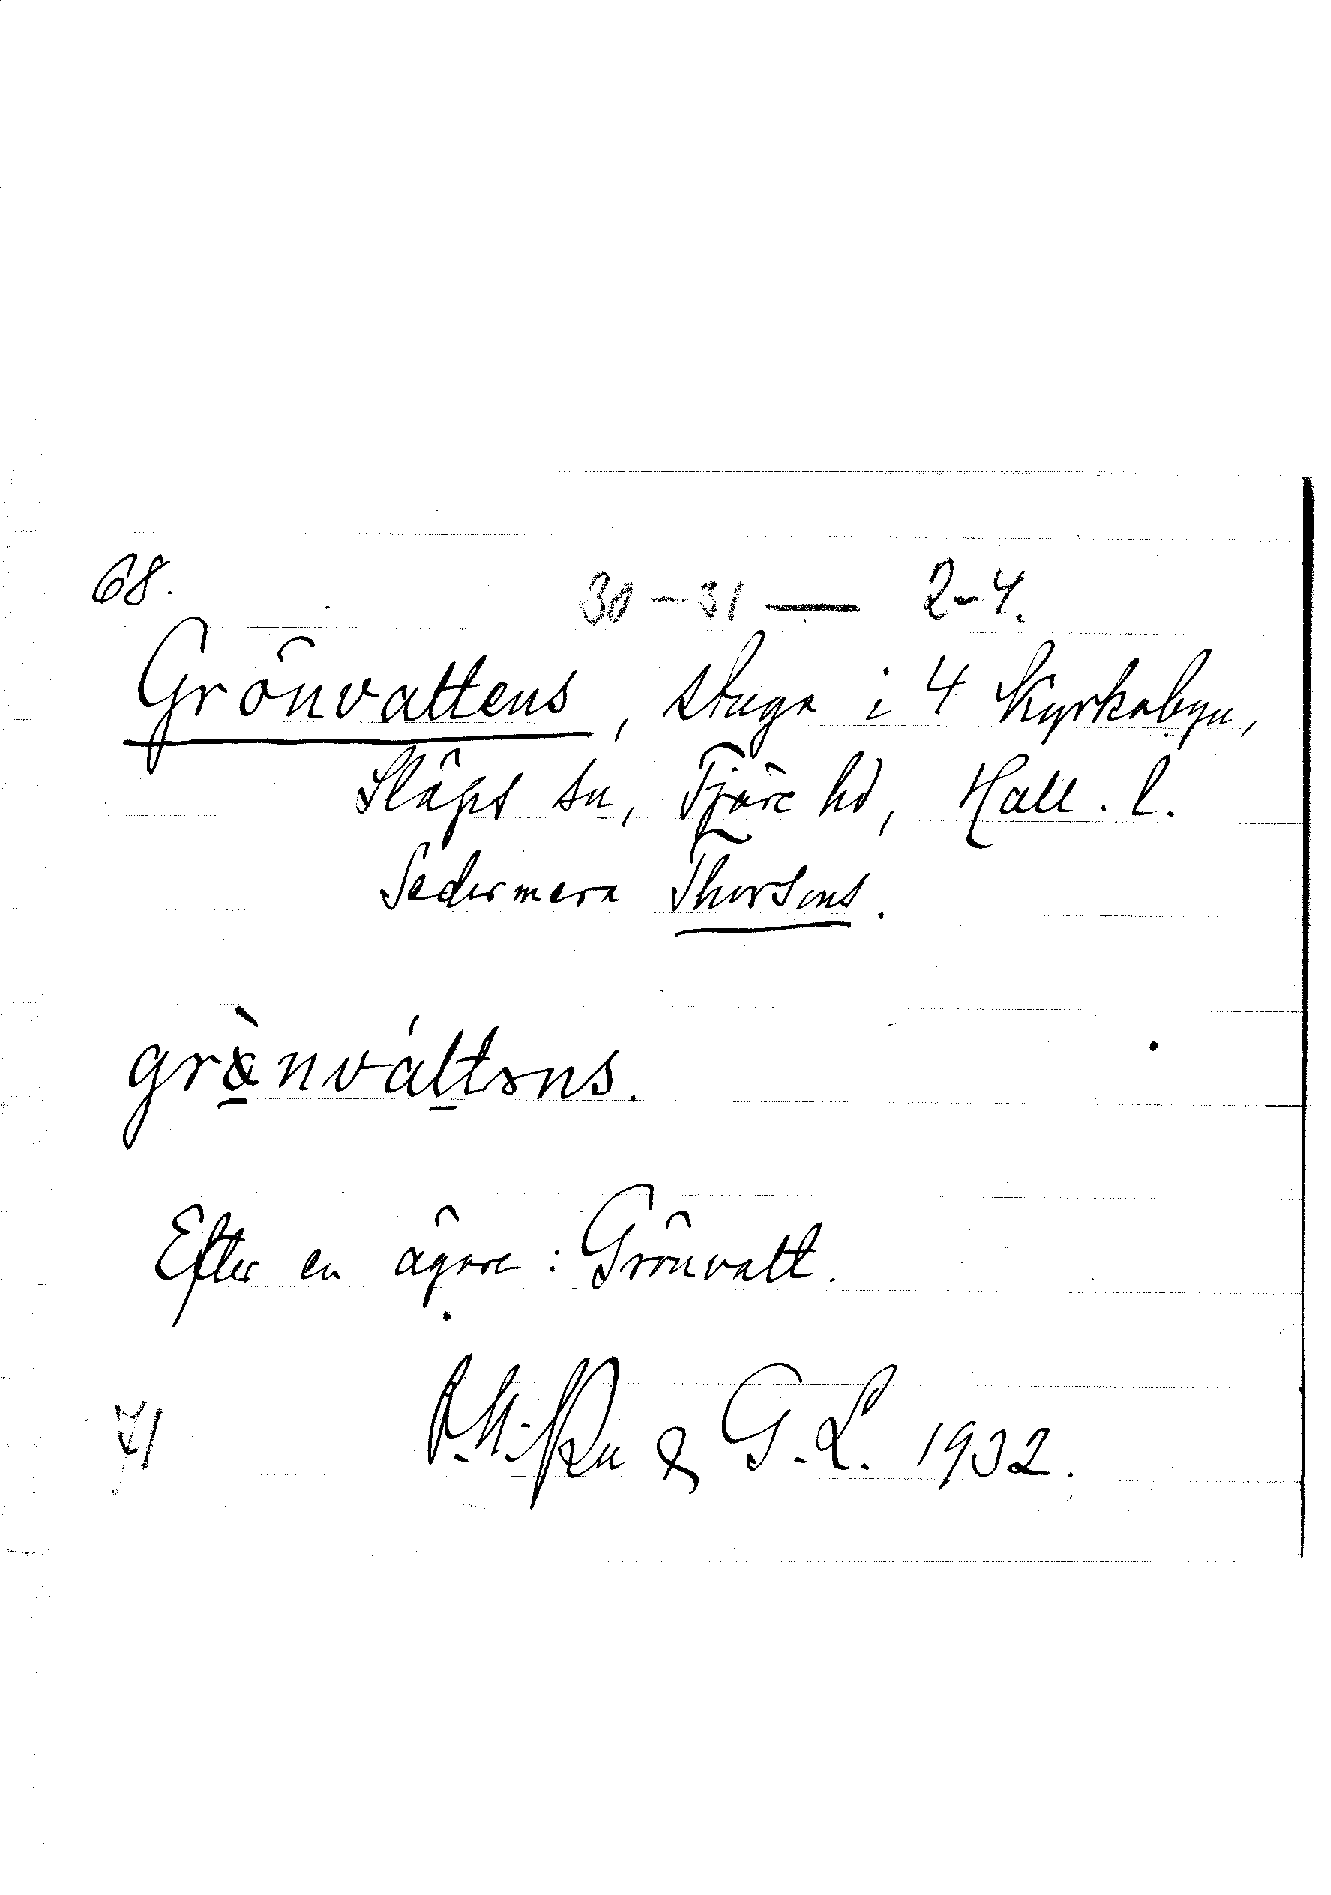 68.
30-31 — 2-4.
Grönvattens, stuga i 4 Kyrkobyn,
Släps sn, Fjäre hd, Hall. l.
Sedermera Thorsons.
Efter en ägare: Grönvatt.
71
& G. L. 1932.